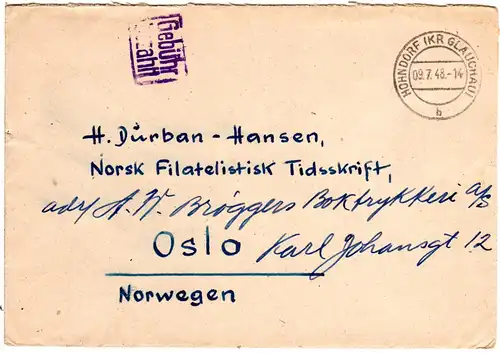 Gebühr
zahlt
HOHNDORF (KR GLAUCHAU)
09.7.48.-14
b
H. Durban-Hansen,
Norsk Filatelistisk Tidsskrift,
adr/ A. W. Brøggers Boktrykkeri a/s
Oslo Karl Johansgt 12
Norwegen